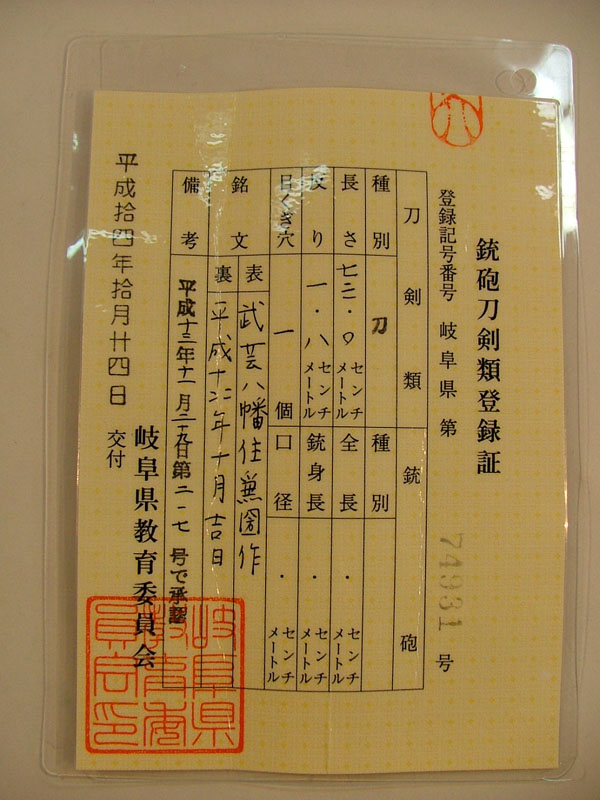 銃砲刀剣類登録証
登録記号番号 岐阜県 第 74931 号
刀剣類 銃砲
種別 刀 種別
長さ 七三・〇 センチメートル 全長 ・ センチメートル
反り 一・八 センチメートル 銃身長 ・ センチメートル
目くぎ穴 一 個 口径 ・ センチメートル
銘文 表 武芸八幡住兼圀作
裏 年十月吉日
備考 平成十三年十一月 日第二-七 号で承認
平成拾四年拾月廿四日 交付
岐阜県教育委員会
岐阜県教育委員会印